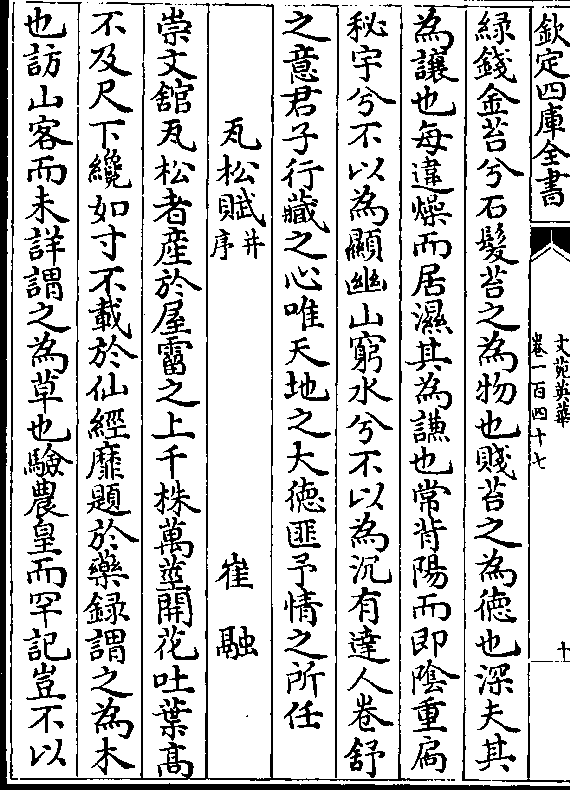 欽定四庫全書
文苑英華
卷一百四十七
十
緑錢金苔兮石髮苔之為物也賤苔之為徳也深夫其
為讓也每違燥而居濕其為謙也常背陽而即陰重扄
秘宇兮不以為顯幽山窮水兮不以為沉有達人卷舒
之意君子行藏之心唯天地之大徳匪予情之所任
瓦松賦并序
崔融
崇文舘瓦松者産於屋霤之上千株萬莖開花吐葉髙
不及尺下纔如寸不載於仙經靡題於藥録謂之為木
也訪山客而未詳謂之為草也驗農皇而罕記豈不以